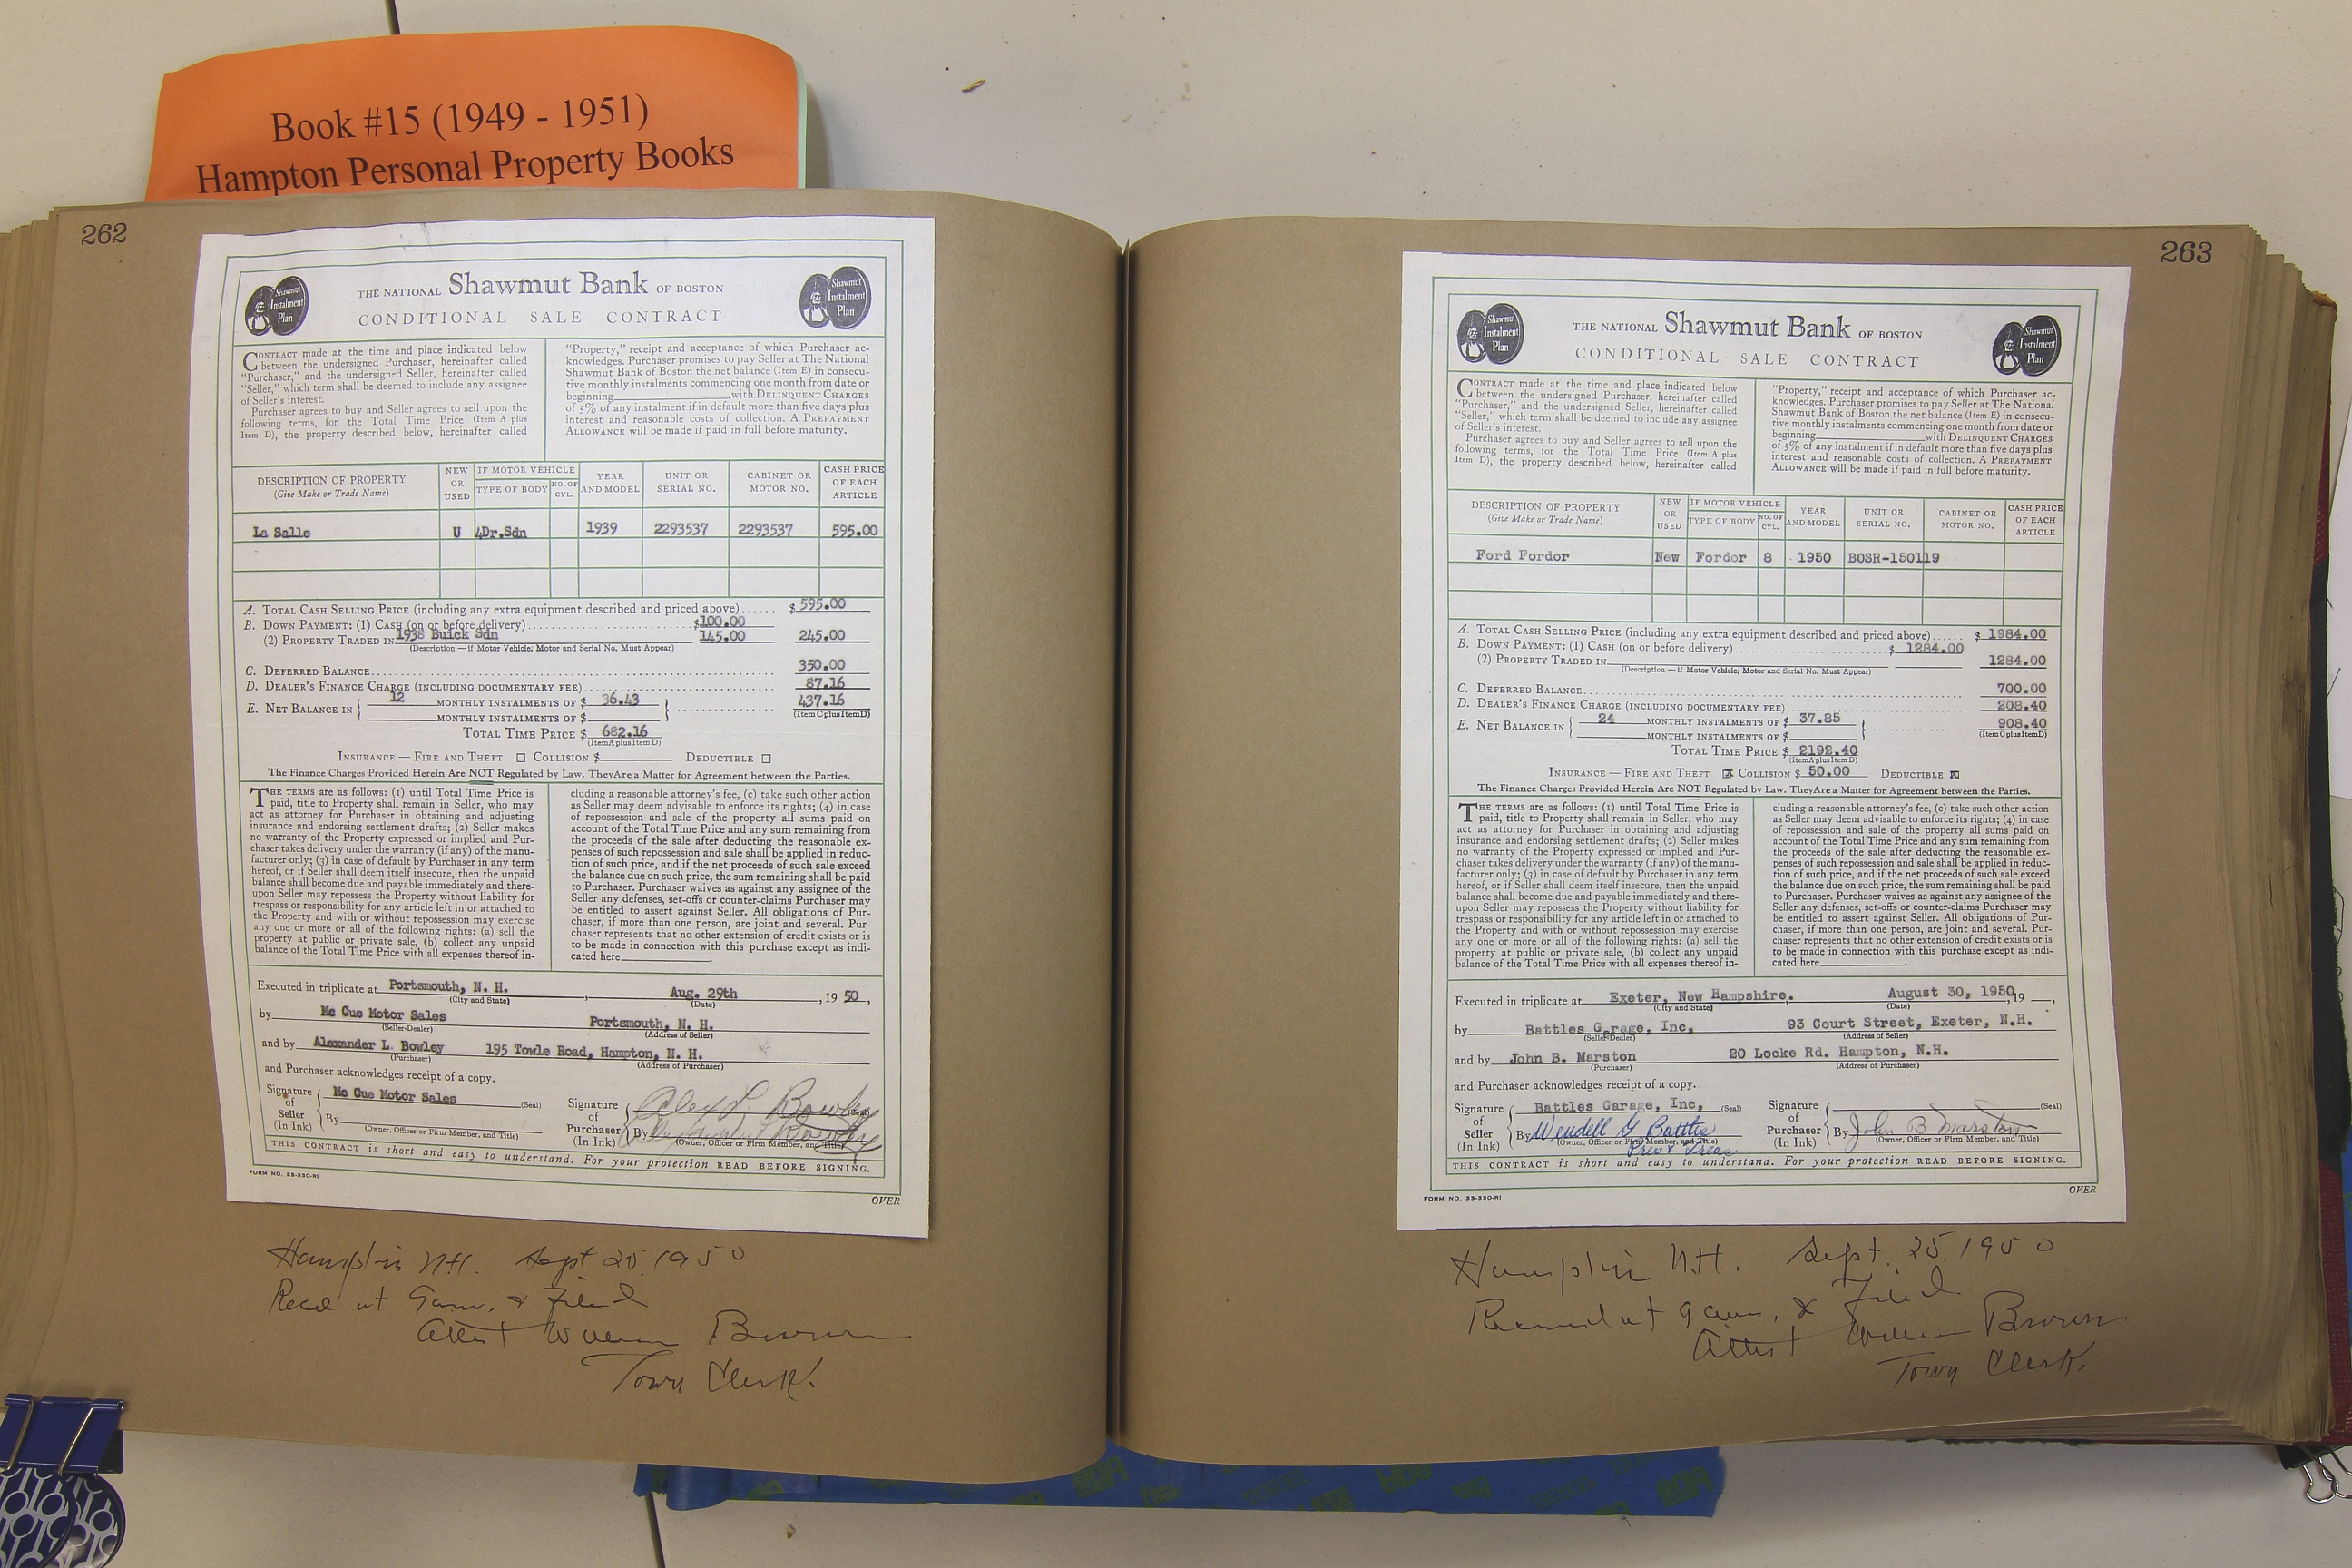 Book #15 (1949 - 1951)
Hampton Personal Property Books
262
Shawmut
Instalment
Plan
THE NATIONAL Shawmut Bank OF BOSTON
CONDITIONAL SALE CONTRACT
Shawmut
Instalment
Plan
CONTRACT made at the time and place indicated below
between the undersigned Purchaser, hereinafter called
"Purchaser," and the undersigned Seller, hereinafter called
"Seller," which term shall be deemed to include any assignee
of Seller's interest.
Purchaser agrees to buy and Seller agrees to sell upon the
following terms, for the Total Time Price (Item A plus
Item D), the property described below, hereinafter called
"Property," receipt and acceptance of which Purchaser ac-
knowledges. Purchaser promises to pay Seller at The National
Shawmut Bank of Boston the net balance (Item E) in consecu-
tive monthly instalments commencing one month from date or
beginning____with DELINQUENT CHARGES
of 5% of any instalment if in default more than five days plus
interest and reasonable costs of collection. A PREPAYMENT
ALLOWANCE will be made if paid in full before maturity.
DESCRIPTION OF PROPERTY
(Give Make or Trade Name)
NEW
OR
USED
IF MOTOR VEHICLE
TYPE OF BODY
NO. OF
CYL.
YEAR
AND MODEL
UNIT OR
SERIAL NO.
CABINET OR
MOTOR NO.
CASH PRICE
OF EACH
ARTICLE
La Salle U 4Dr.Sdn 1939 2293537 2293537 595.00
A. TOTAL CASH SELLING PRICE (including any extra equipment described and priced above)...... $ 595.00
B. DOWN PAYMENT: (1) CASH (on or before delivery)........ $100.00
(2) PROPERTY TRADED IN 1938 Buick Sdn 145.00 245.00
(Description — if Motor Vehicle, Motor and Serial No. Must Appear)
C. DEFERRED BALANCE........ 350.00
D. DEALER'S FINANCE CHARGE (INCLUDING DOCUMENTARY FEE)........ 87.16
E. NET BALANCE IN { 12 MONTHLY INSTALMENTS OF $ 36.43 } ........ 437.16
____MONTHLY INSTALMENTS OF $____ (Item C plus Item D)
TOTAL TIME PRICE $ 682.16
(Item A plus Item D)
INSURANCE — FIRE AND THEFT ☐ COLLISION $____ DEDUCTIBLE ☐
The Finance Charges Provided Herein Are NOT Regulated by Law. They Are a Matter for Agreement between the Parties.
THE TERMS are as follows: (1) until Total Time Price is
paid, title to Property shall remain in Seller, who may
act as attorney for Purchaser in obtaining and adjusting
insurance and endorsing settlement drafts; (2) Seller makes
no warranty of the Property expressed or implied and Pur-
chaser takes delivery under the warranty (if any) of the manu-
facturer only; (3) in case of default by Purchaser in any term
hereof, or if Seller shall deem itself insecure, then the unpaid
balance shall become due and payable immediately and there-
upon Seller may repossess the Property without liability for
trespass or responsibility for any article left in or attached to
the Property and with or without repossession may exercise
any one or more or all of the following rights: (a) sell the
property at public or private sale, (b) collect any unpaid
balance of the Total Time Price with all expenses thereof in-
cluding a reasonable attorney's fee, (c) take such other action
as Seller may deem advisable to enforce its rights; (4) in case
of repossession and sale of the property all sums paid on
account of the Total Time Price and any sum remaining from
the proceeds of the sale after deducting the reasonable ex-
penses of such repossession and sale shall be applied in reduc-
tion of such price, and if the net proceeds of such sale exceed
the balance due on such price, the sum remaining shall be paid
to Purchaser. Purchaser waives as against any assignee of the
Seller any defenses, set-offs or counter-claims Purchaser may
be entitled to assert against Seller. All obligations of Pur-
chaser, if more than one person, are joint and several. Pur-
chaser represents that no other extension of credit exists or is
to be made in connection with this purchase except as indi-
cated here____.
Executed in triplicate at Portsmouth, N. H. , Aug. 29th , 19 50 ,
(City and State) (Date)
by Mc Cue Motor Sales Portsmouth, N. H.
(Seller-Dealer) (Address of Seller)
and by Alexander L. Bowley 195 Towle Road, Hampton, N. H.
(Purchaser) (Address of Purchaser)
and Purchaser acknowledges receipt of a copy.
Signature
of
Seller
(In Ink)
Mc Cue Motor Sales (Seal)
By
(Owner, Officer or Firm Member, and Title)
Signature
of
Purchaser
(In Ink)
Alex L. Bowley
By
(Owner, Officer or Firm Member, and Title)
THIS CONTRACT is short and easy to understand. For your protection READ BEFORE SIGNING.
FORM NO. 33-330-R1
OVER
Hampton N.H. Sept 25 1950
Recd at 9 a.m. & Filed
Attest William Brown
Town Clerk.
263
Shawmut
Instalment
Plan
THE NATIONAL Shawmut Bank OF BOSTON
CONDITIONAL SALE CONTRACT
Shawmut
Instalment
Plan
CONTRACT made at the time and place indicated below
between the undersigned Purchaser, hereinafter called
"Purchaser," and the undersigned Seller, hereinafter called
"Seller," which term shall be deemed to include any assignee
of Seller's interest.
Purchaser agrees to buy and Seller agrees to sell upon the
following terms, for the Total Time Price (Item A plus
Item D), the property described below, hereinafter called
"Property," receipt and acceptance of which Purchaser ac-
knowledges. Purchaser promises to pay Seller at The National
Shawmut Bank of Boston the net balance (Item E) in consecu-
tive monthly instalments commencing one month from date or
beginning____with DELINQUENT CHARGES
of 5% of any instalment if in default more than five days plus
interest and reasonable costs of collection. A PREPAYMENT
ALLOWANCE will be made if paid in full before maturity.
DESCRIPTION OF PROPERTY
(Give Make or Trade Name)
NEW
OR
USED
IF MOTOR VEHICLE
TYPE OF BODY
NO. OF
CYL.
YEAR
AND MODEL
UNIT OR
SERIAL NO.
CABINET OR
MOTOR NO.
CASH PRICE
OF EACH
ARTICLE
Ford Fordor New Fordor 8 1950 BOSR-150119
A. TOTAL CASH SELLING PRICE (including any extra equipment described and priced above)...... $ 1984.00
B. DOWN PAYMENT: (1) CASH (on or before delivery)........ $ 1284.00
(2) PROPERTY TRADED IN____ 1284.00
(Description — if Motor Vehicle, Motor and Serial No. Must Appear)
C. DEFERRED BALANCE........ 700.00
D. DEALER'S FINANCE CHARGE (INCLUDING DOCUMENTARY FEE)........ 208.40
E. NET BALANCE IN { 24 MONTHLY INSTALMENTS OF $ 37.85 } ........ 908.40
____MONTHLY INSTALMENTS OF $____ (Item C plus Item D)
TOTAL TIME PRICE $ 2192.40
(Item A plus Item D)
INSURANCE — FIRE AND THEFT ☒ COLLISION $ 50.00 DEDUCTIBLE ☒
The Finance Charges Provided Herein Are NOT Regulated by Law. They Are a Matter for Agreement between the Parties.
THE TERMS are as follows: (1) until Total Time Price is
paid, title to Property shall remain in Seller, who may
act as attorney for Purchaser in obtaining and adjusting
insurance and endorsing settlement drafts; (2) Seller makes
no warranty of the Property expressed or implied and Pur-
chaser takes delivery under the warranty (if any) of the manu-
facturer only; (3) in case of default by Purchaser in any term
hereof, or if Seller shall deem itself insecure, then the unpaid
balance shall become due and payable immediately and there-
upon Seller may repossess the Property without liability for
trespass or responsibility for any article left in or attached to
the Property and with or without repossession may exercise
any one or more or all of the following rights: (a) sell the
property at public or private sale, (b) collect any unpaid
balance of the Total Time Price with all expenses thereof in-
cluding a reasonable attorney's fee, (c) take such other action
as Seller may deem advisable to enforce its rights; (4) in case
of repossession and sale of the property all sums paid on
account of the Total Time Price and any sum remaining from
the proceeds of the sale after deducting the reasonable ex-
penses of such repossession and sale shall be applied in reduc-
tion of such price, and if the net proceeds of such sale exceed
the balance due on such price, the sum remaining shall be paid
to Purchaser. Purchaser waives as against any assignee of the
Seller any defenses, set-offs or counter-claims Purchaser may
be entitled to assert against Seller. All obligations of Pur-
chaser, if more than one person, are joint and several. Pur-
chaser represents that no other extension of credit exists or is
to be made in connection with this purchase except as indi-
cated here____.
Executed in triplicate at Exeter, New Hampshire. August 30, 1950, 19 __,
(City and State) (Date)
by Battles Garage, Inc, 93 Court Street, Exeter, N.H.
(Seller-Dealer) (Address of Seller)
and by John B. Marston 20 Locke Rd. Hampton, N.H.
(Purchaser) (Address of Purchaser)
and Purchaser acknowledges receipt of a copy.
Signature
of
Seller
(In Ink)
Battles Garage, Inc, (Seal)
By Wendell G Battles
(Owner, Officer or Firm Member, and Title)
Pres & Treas
Signature
of
Purchaser
(In Ink)
(Seal)
By John B Marston
(Owner, Officer or Firm Member, and Title)
THIS CONTRACT is short and easy to understand. For your protection READ BEFORE SIGNING.
FORM NO. 33-330-R1
OVER
Hampton N.H. Sept. 25. 1950
Received at 9 a.m. & Filed
Attest William Brown
Town Clerk.